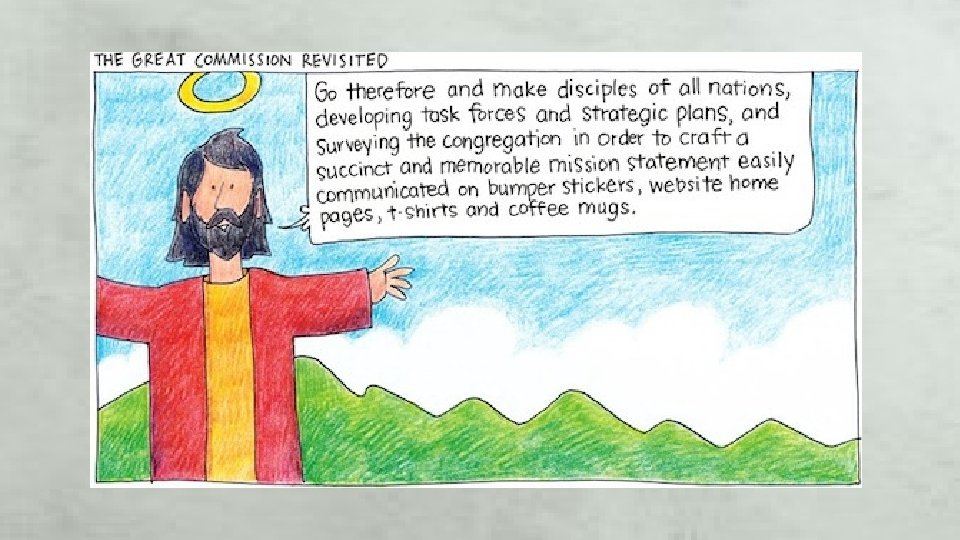 THE GREAT COMMISSION REVISITED
Go therefore and make disciples of all nations,
developing task forces and strategic plans, and
surveying the congregation in order to craft a
succinct and memorable mission statement easily
communicated on bumper stickers, website home
pages, t-shirts and coffee mugs.